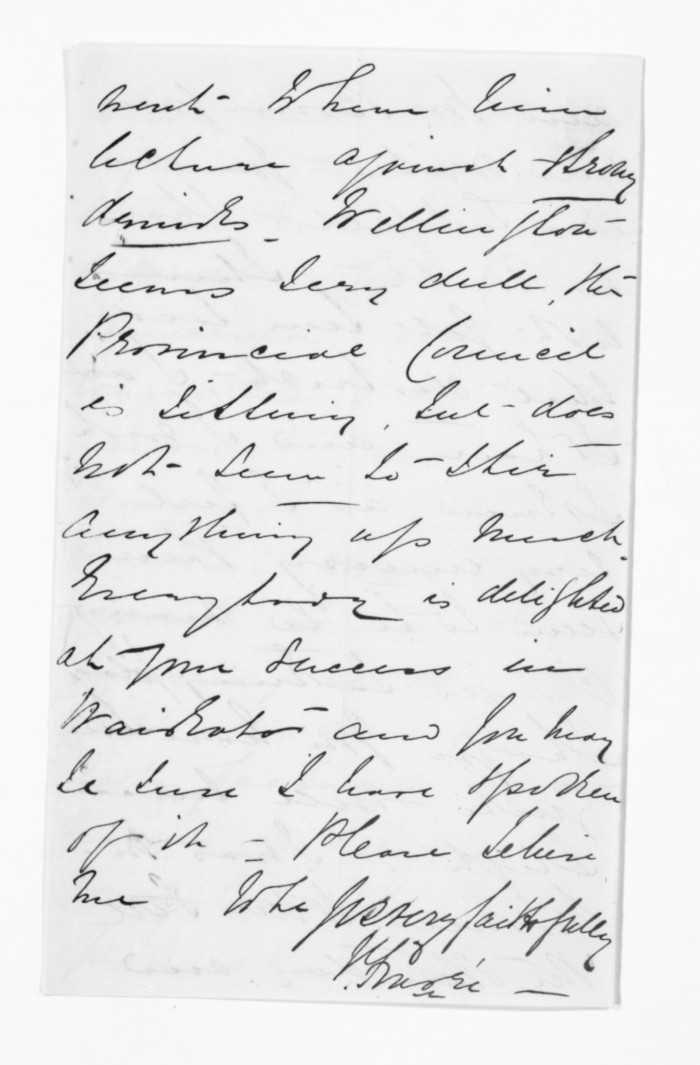 next. I have him
lecture against strong
drinks. Wellington
seems very dull, the
Provincial Council
is sitting, but does
not seem to stir
anything up much.
Everybody is delighted
at your success in
Waikato and you may
be sure I have spoken
of it — Please believe
me to be yrs very faithfully